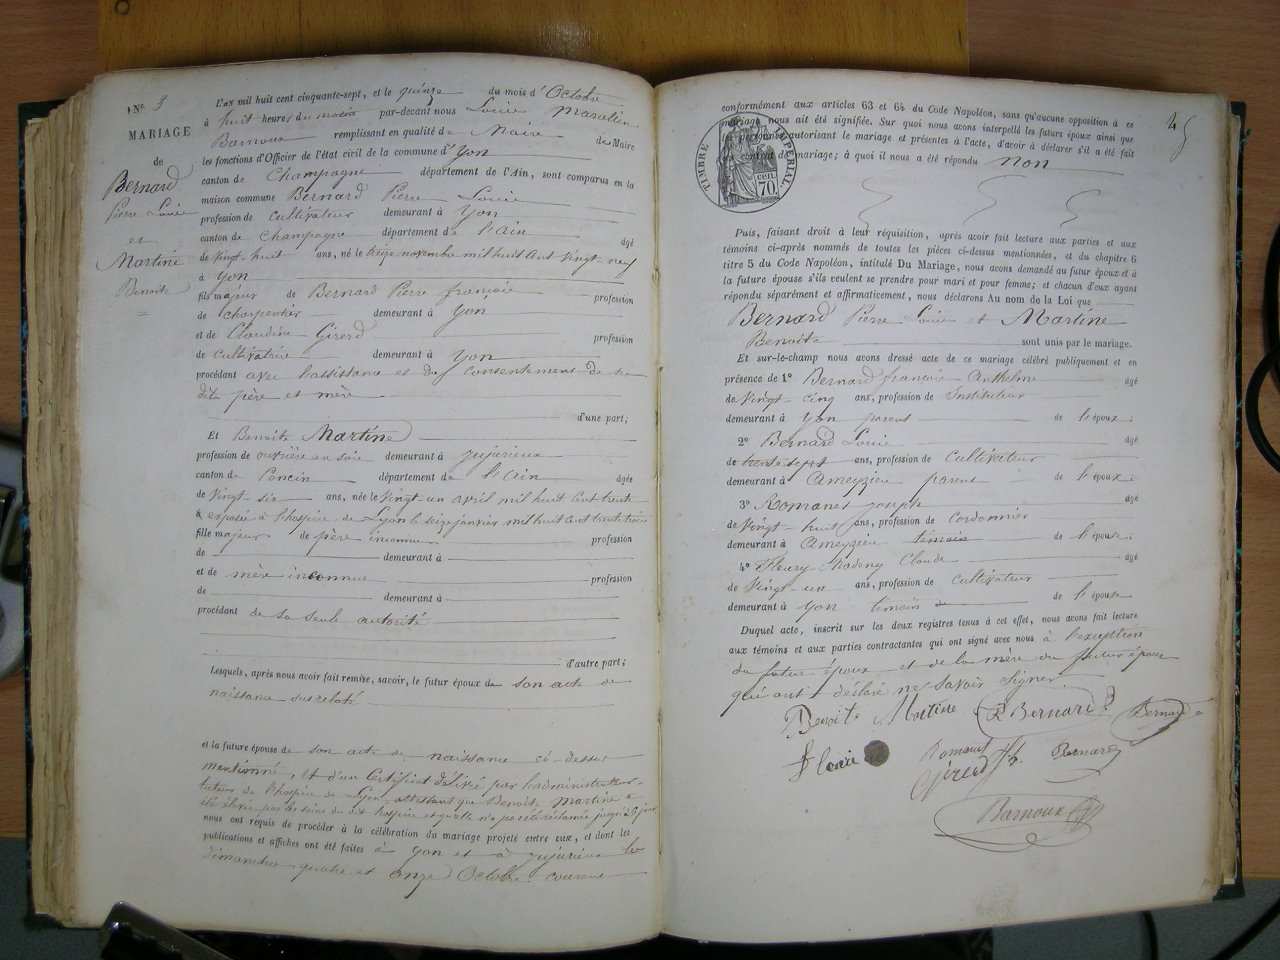 No. 3
MARIAGE
de
Bernard
Pierre Louis
et
Martine
Benoite
L'AN mil huit cent cinquante-sept, et le quinze du mois d'Octobre
à huit heures du matin par-devant nous Louis Marcelin
Barnoux remplissant en qualité de Maire
les fonctions d'Officier de l'état civil de la commune d'yon
canton de Champagne département de l'Ain, sont comparus en la
maison commune Bernard Pierre Louis
profession de cultivateur demeurant à yon
canton de Champagne département de l'ain âgé
de vingt-huit ans, né le treize novembre mil huit cent vingt-neuf
à yon
fils majeur de Bernard Pierre françois profession
de charpentier demeurant à yon
et de Claudine Girerd profession
de cultivatrice demeurant à yon
procédant avec l'assistance et du consentement de ses
dits père et mère
d'une part;
Et Benoite Martine
profession de ouvrière en soie demeurant à jujurieux
canton de Poncin département de l'ain âgée
de vingt-six ans, née le vingt un avril mil huit cent trente
à exposée à l'hospice de Lyon le seize janvier mil huit cent trente trois
fille majeure de père inconnu profession
de demeurant à
et de mère inconnue profession
de demeurant à
procédant de sa seule autorité
d'autre part;
Lesquels, après nous avoir fait remise, savoir, le futur époux de son acte de
naissance susrelaté
et la future épouse de son acte de naissance ci-dessus
mentionné, et d'un certificat délivré par l'administration
de l'hospice de Lyon attestant que Benoite Martine a
été élevée par les soins du dit hospice et qu'elle n'a pas été réclamée jusqu'à ce jour
nous ont requis de procéder à la célébration du mariage projeté entre eux, et dont les
publications et affiches ont été faites à yon et à jujurieux les
dimanches quatre et onze Octobre courant
45
conformément aux articles 63 et 64 du Code Napoléon, sans qu'aucune opposition à ce
mariage nous ait été signifiée. Sur quoi nous avons interpellé les futurs époux ainsi que
les personnes autorisant le mariage et présentes à l'acte, d'avoir à déclarer s'il a été fait
un contrat de mariage; à quoi il nous a été répondu non
TIMBRE IMPÉRIAL
70 cen.
Puis, faisant droit à leur réquisition, après avoir fait lecture aux parties et aux
témoins ci-après nommés de toutes les pièces ci-dessus mentionnées, et du chapitre 6
titre 5 du Code Napoléon, intitulé Du Mariage, nous avons demandé au futur époux et à
la future épouse s'ils veulent se prendre pour mari et pour femme; et chacun d'eux ayant
répondu séparément et affirmativement, nous déclarons Au nom de la Loi que
Bernard Pierre Louis et Martine
Benoite sont unis par le mariage.
Et sur-le-champ nous avons dressé acte de ce mariage célébré publiquement et en
présence de 1° Bernard françois Anthelme âgé
de Vingt-cinq ans, profession de Instituteur
demeurant à yon parent de l'époux
2° Bernard Louis âgé
de trente sept ans, profession de cultivateur
demeurant à Ameyzieu parent de l'époux
3° Romanet joseph âgé
de Vingt-huit ans, profession de cordonnier
demeurant à Ameyzieu témoin de l'époux
4° Fleury Claude âgé
de Vingt-un ans, profession de cultivateur
demeurant à yon témoin de l'époux
Duquel acte, inscrit sur les deux registres tenus à cet effet, nous avons fait lecture
aux témoins et aux parties contractantes qui ont signé avec nous à l'exception
du futur époux et de la mère du futur époux
qui ont déclaré ne savoir signer.
Benoite Martine Bernard Bernard
Romanet Bernard
Barnoux